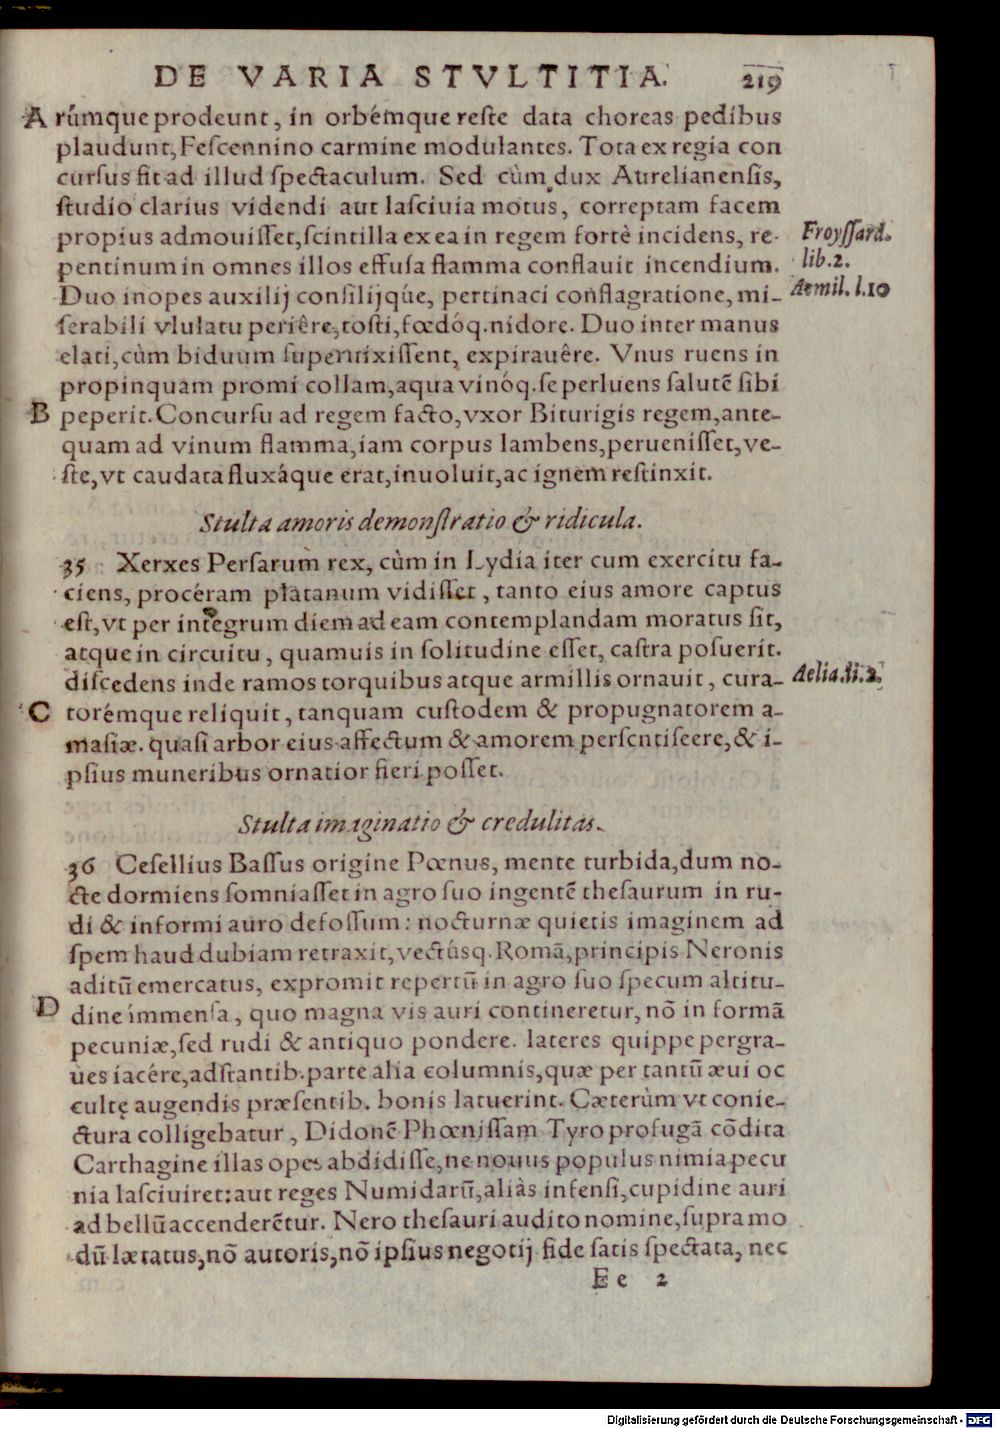 DE VARIA STVLTITIA. 219
A rúmque prodeunt, in orbémque reste data choreas pedibus
plaudunt, Fescennino carmine modulantes. Tota ex regia con
cursus fit ad illud spectaculum. Sed cùm dux Aurelianensis,
studio clarius videndi aut lasciuia motus, correptam facem
propius admouisset, scintilla ex ea in regem fortè incidens, re-
pentinum in omnes illos effusa flamma conflauit incendium.
Froyssard.
lib.2.
Aemil. l.10
Duo inopes auxilij consilijque, pertinaci conflagratione, mi-
serabili vlulatu periêre, tosti, fœdóq. nidore. Duo inter manus
elati, cùm biduum superuixissent, expirauêre. Vnus ruens in
propinquam promi collam, aqua vinóq. se perluens salutē sibi
B peperit. Concursu ad regem facto, vxor Biturigis regem, ante-
quam ad vinum flamma, iam corpus lambens, peruenisset, ve-
ste, vt caudata fluxáque erat, inuoluit, ac ignem restinxit.
Stulta amoris demonstratio & ridicula.
35 Xerxes Persarum rex, cùm in Lydia iter cum exercitu fa-
ciens, procéram platanum vidisset, tanto eius amore captus
est, vt per integrum diem ad eam contemplandam moratus sit,
atque in circuitu, quamuis in solitudine esset, castra posuerit.
discedens inde ramos torquibus atque armillis ornauit, cura-
Aelia.li.2.
C torémque reliquit, tanquam custodem & propugnatorem a-
masiæ. quasi arbor eius affectum & amorem persentiscere, & i-
psius muneribus ornatior fieri posset.
Stulta imaginatio & credulitas.
36 Cesellius Bassus origine Pœnus, mente turbida, dum no-
cte dormiens somniasset in agro suo ingentē thesaurum in ru-
di & informi auro defossum: nocturnæ quietis imaginem ad
spem haud dubiam retraxit, vectúsq. Romā, principis Neronis
aditū emercatus, expromit repertū in agro suo specum altitu-
D dine immensa, quo magna vis auri contineretur, nō in formā
pecuniæ, sed rudi & antiquo pondere. lateres quippe pergra-
ues iacére, adstantib. parte alia columnis, quæ per tantū æui oc
cultę augendis præsentib. bonis latuerint. Cæterùm vt conie-
ctura colligebatur, Didonē Phœnissam Tyro profugā cōdita
Carthagine illas opes abdidisse, ne nouus populus nimia pecu
nia lasciuiret: aut reges Numidarū, aliàs infensi, cupidine auri
ad bellū accenderētur. Nero thesauri audito nomine, supra mo
dū lætatus, nō autoris, nō ipsius negotij fide satis spectata, nec
Ee 2
Digitalisierung gefördert durch die Deutsche Forschungsgemeinschaft - DFG